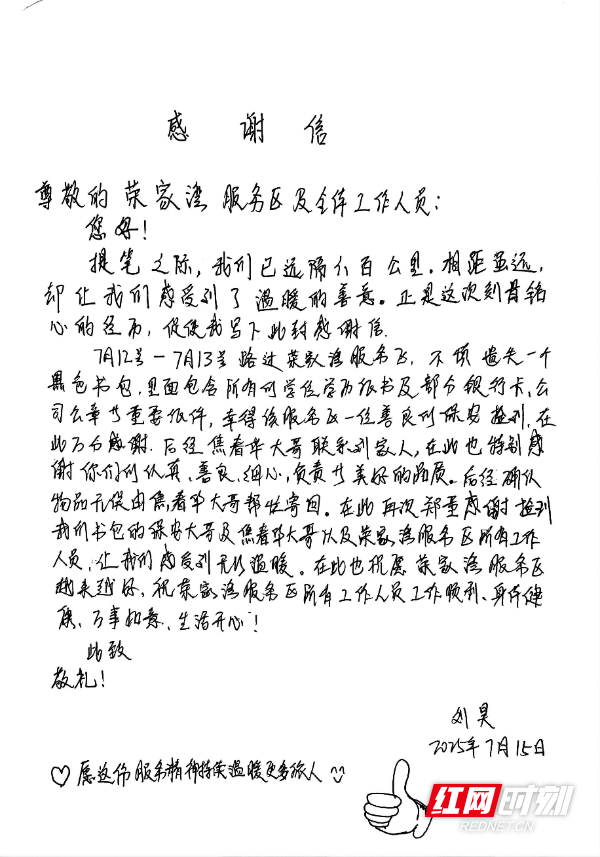 感谢信
尊敬的荣家湾服务区及全体工作人员：
您好！
提笔之际，我们已远隔六百公里。相距虽远，
却让我们感受到了温暖的善意。正是这次刻骨铭
心的经历，促使我写下此封感谢信。
7月12号－7月13号路过荣家湾服务区，不慎遗失一个
黑色书包，里面包含所有的学位学历证书及部分银行卡、公
司公章等重要证件，幸得该服务区一位善良的保安捡到，在
此万分感谢。后经焦春华大哥联系到家人，在此也特别感
谢你们的认真、善良、细心，负责等美好的品质。后经确认
物品无误由焦春华大哥帮忙寄回。在此再次郑重感谢捡到
我们书包的保安大哥及焦春华大哥以及荣家湾服务区所有工作
人员，让我们感受到无比温暖。在此也祝愿荣家湾服务区
越来越好，祝荣家湾服务区所有工作人员工作顺利、身体健
康、万事如意、生活开心！
此致
敬礼！
刘昊
2025年7月15日
♡愿这份服务精神持续温暖更多旅人
红网时刻
REDNET.CN